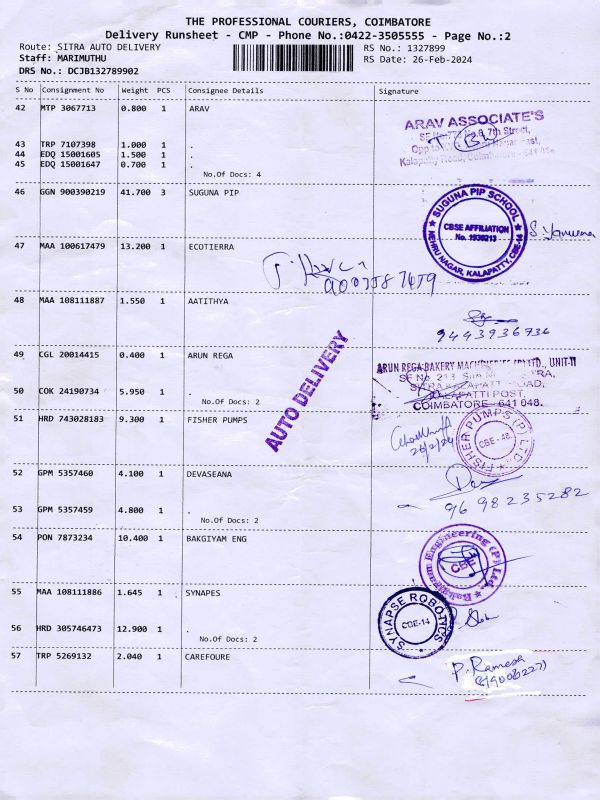 THE PROFESSIONAL COURIERS, COIMBATORE
Delivery Runsheet - CMP - Phone No.:0422-3505555 - Page No.:2
Route: SITRA AUTO DELIVERY RS No.: 1327899
Staff: MARIMUTHU RS Date: 26-Feb-2024
DRS No.: DCJB132789902
S No Consignment No Weight PCS Consignee Details Signature
42 MTP 3067713 0.800 1 ARAV
ARAV ASSOCIATE'S
43 TRP 7107398 1.000 1 .
44 EDQ 15001605 1.500 1 .
45 EDQ 15001647 0.700 1 .
No.Of Docs: 4
46 GGN 900390219 41.700 3 SUGUNA PIP
SUGUNA PIP SCHOOL
CBSE AFFILIATION
No. 1930213
NEHRU NAGAR, KALAPATTY, CBE-14
47 MAA 100617479 13.200 1 ECOTIERRA
48 MAA 108111887 1.550 1 AATITHYA
9443936736
AUTO DELIVERY
49 CGL 20014415 0.400 1 ARUN REGA
ARUN REGA BAKERY MACHINERIES (P) LTD., UNIT-II
50 COK 24190734 5.950 1 .
No.Of Docs: 2
COIMBATORE - 641 048.
51 HRD 743028183 9.300 1 FISHER PUMPS
FISHER PUMPS (P) LTD.
CBE-48
26/2/24
52 GPM 5357460 4.100 1 DEVASEANA
9698235282
53 GPM 5357459 4.800 1 .
No.Of Docs: 2
54 PON 7873234 10.400 1 BAKGIYAM ENG
Bakgiyam Engineering (P) Ltd.
CBE
55 MAA 108111886 1.645 1 SYNAPES
SYNAPSE ROBOTICS
CBE-14
56 HRD 305746473 12.900 1 .
No.Of Docs: 2
57 TRP 5269132 2.040 1 CAREFOURE
P. Ramesh